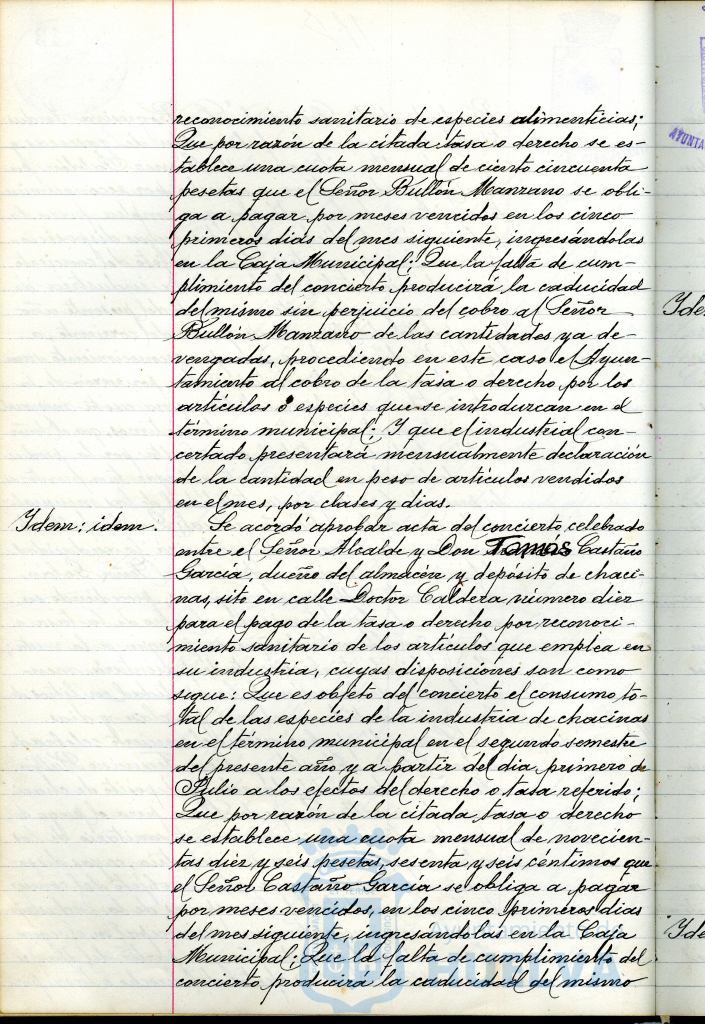 reconocimiento sanitario de especies alimenticias;
Que por razón de la citada tasa o derecho se es-
tablece una cuota mensual de ciento cincuenta
pesetas que el Señor Bullón Manzano se obli-
ga a pagar por meses vencidos en los cinco
primeros dias del mes siguiente, ingresándolas
en la Caja Municipal; Que la falta de cum-
plimiento del concierto producirá la caducidad
del mismo sin perjuicio del cobro al Señor
Bullón Manzano de las cantidades ya de-
vengadas, procediendo en este caso el Ayun-
tamiento al cobro de la tasa o derecho por los
artículos o especies que se introduzcan en el
término municipal; Y que el industrial con-
certado presentará mensualmente declaración
de la cantidad en peso de artículos vendidos
en el mes, por clases y dias.
Idem: idem.
Se acordó aprobar acta del concierto celebrado
entre el Señor Alcalde y Don Tomás Castaño
García, dueño del almacén y depósito de chaci-
nas, sito en calle Doctor Caldera número diez
para el pago de la tasa o derecho por reconoci-
miento sanitario de los artículos que emplea en
su industria, cuyas disposiciones son como
sigue: Que es objeto del concierto el consumo to-
tal de las especies de la industria de chacinas
en el término municipal en el segundo semestre
del presente año y a partir del dia primero de
Julio a los efectos del derecho o tasa referido;
Que por razón de la citada tasa o derecho
se establece una cuota mensual de novecien-
tas diez y seis pesetas, sesenta y seis centimos que
el Señor Castaño García se obliga a pagar
por meses vencidos, en los cinco primeros dias
del mes siguiente, ingresándolas en la Caja
Municipal; Que la falta de cumplimiento del
concierto producira la caducidad del mismo
Ayuntamiento
HUELVA
AYUNTA
Ide
Ide